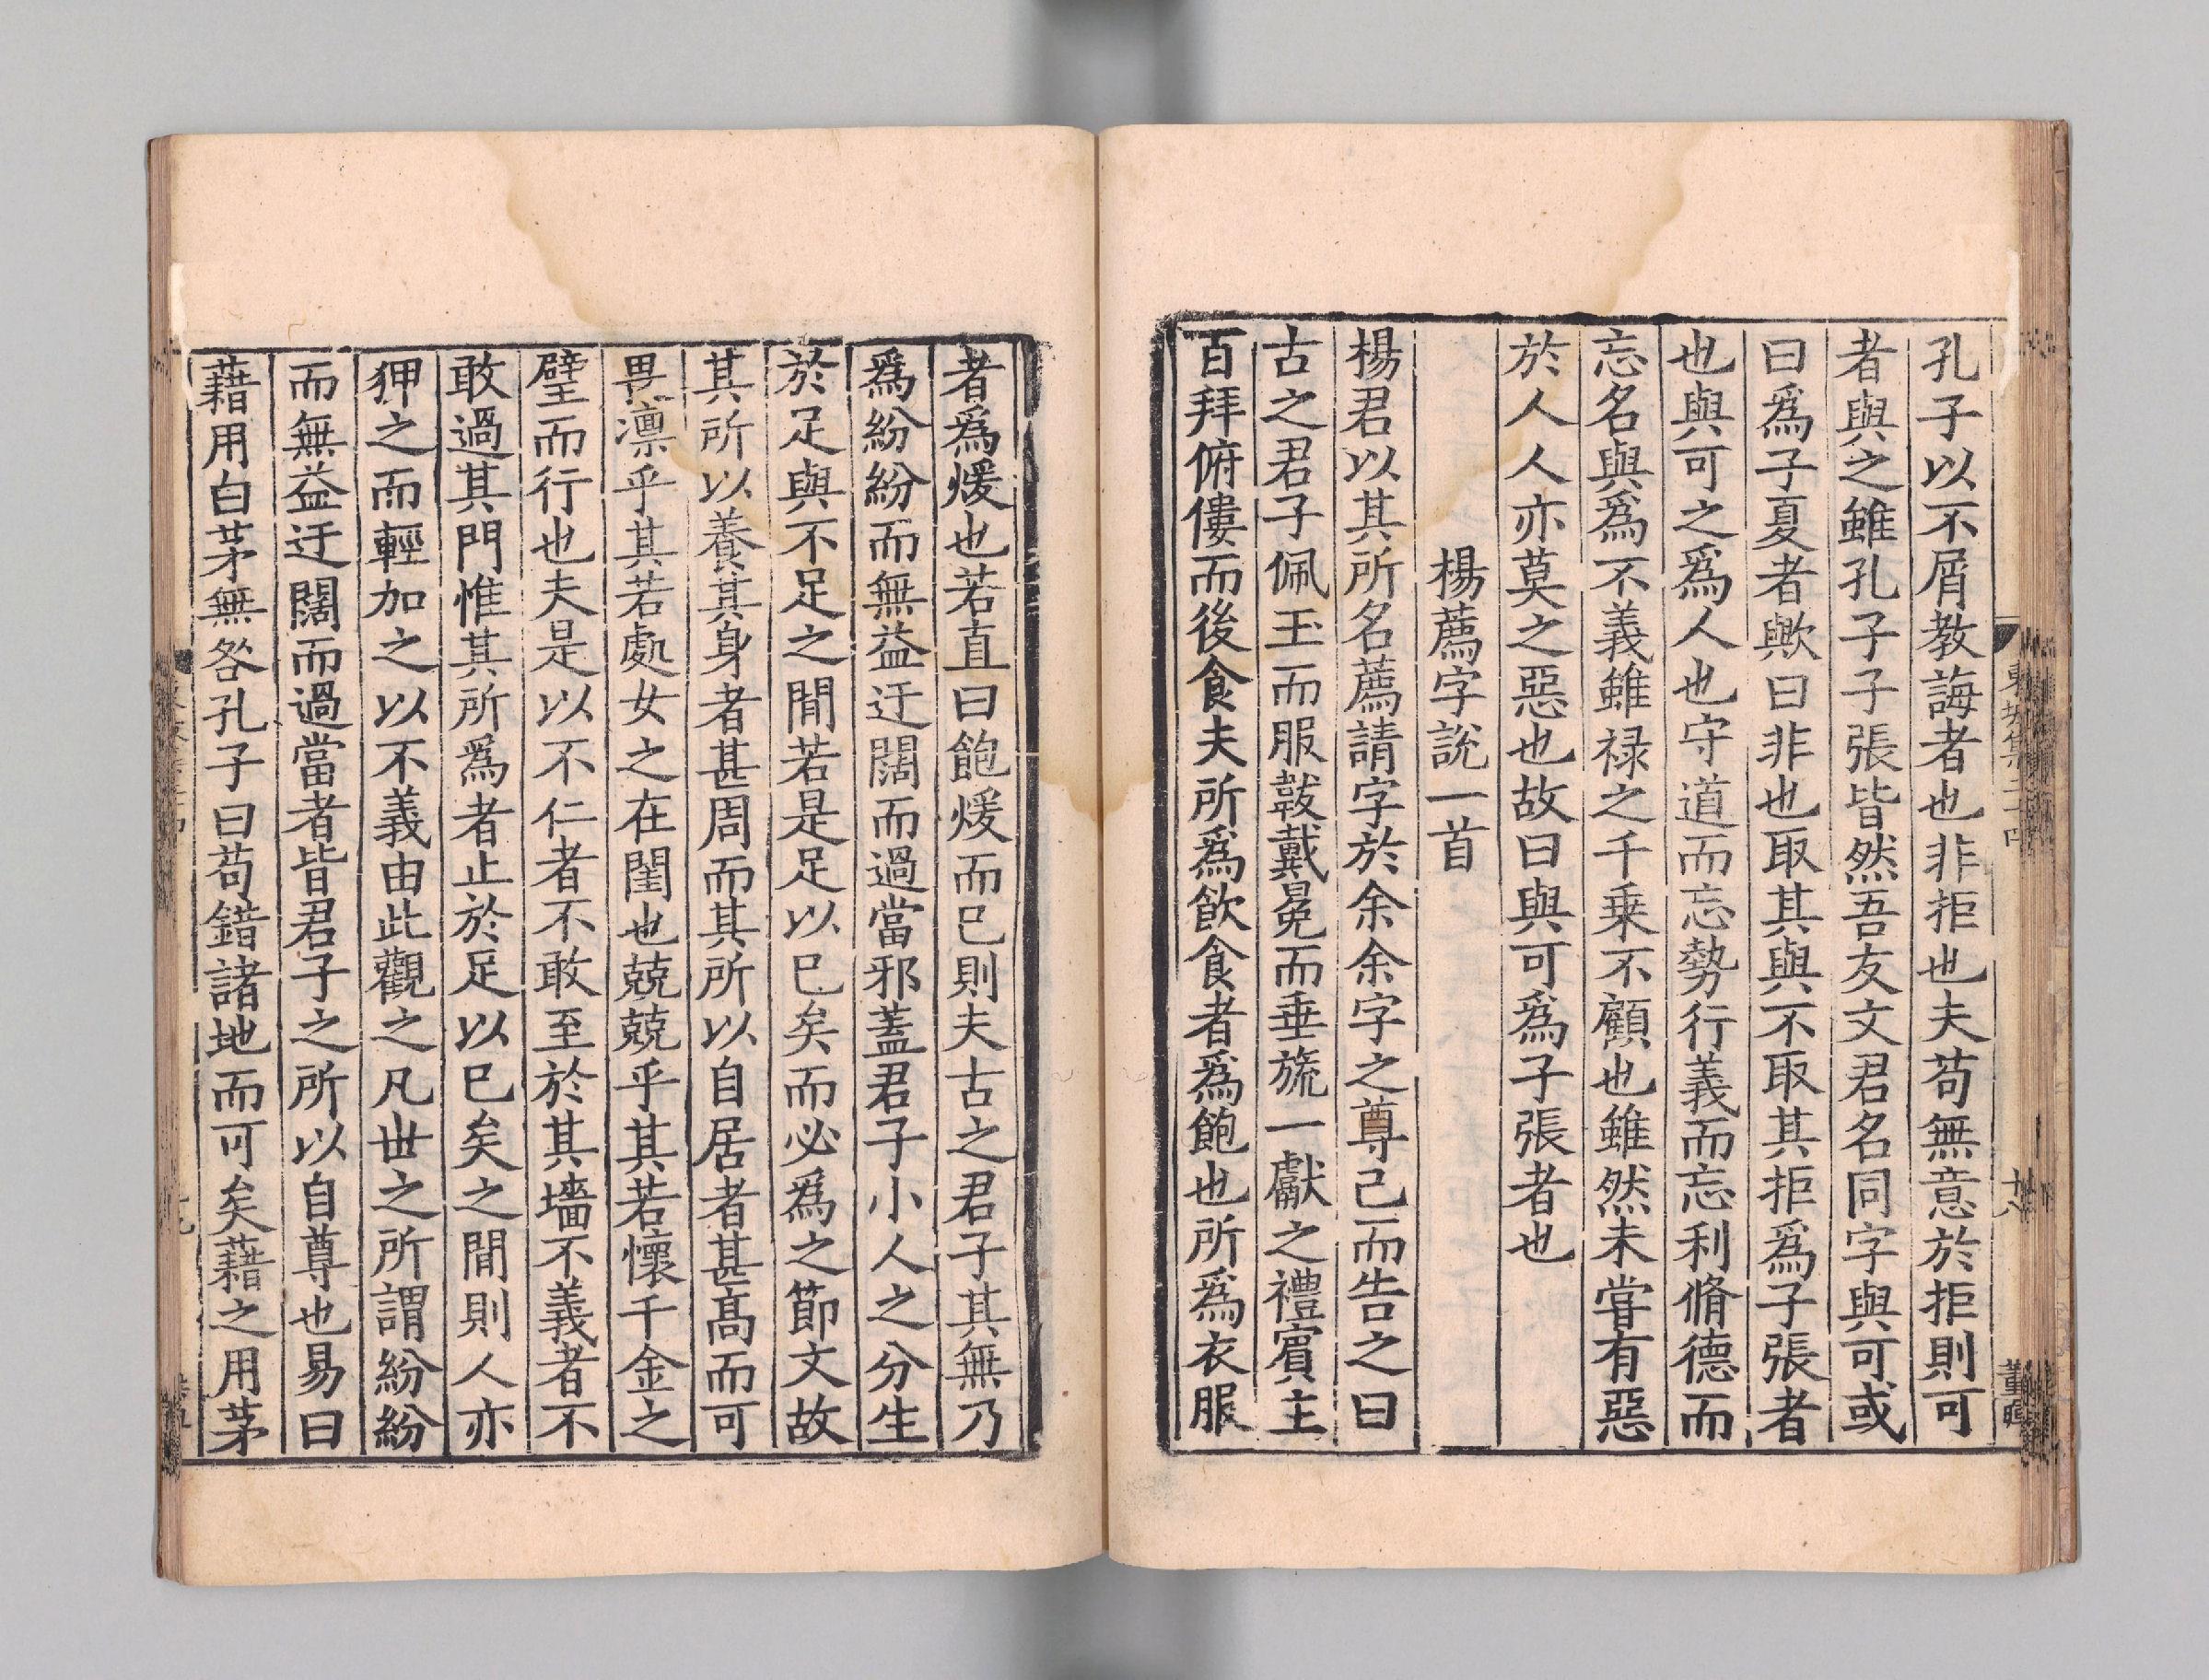 孔子以不屑教誨者也非拒也夫苟無意於拒則可
者與之雖孔子子張皆然吾友文君名同字與可或
曰爲子夏者歟曰非也取其與不取其拒爲子張者
也與可之爲人也守道而忘勢行義而忘利脩德而
忘名與爲不義雖禄之千乗不顧也雖然未甞有惡
於人人亦莫之惡也故曰與可爲子張者也
楊薦字説一首
楊君以其所名薦請字於余余字之尊己而告之曰
古之君子佩玉而服韍戴冕而垂旒一獻之禮賔主
百拜俯僂而後食夫所爲飲食者爲飽也所爲衣服
者爲煖也若直曰飽煖而已則夫古之君子其無乃
爲紛紛而無益迂闊而過當邪蓋君子小人之分生
於足與不足之間若是足以已矣而必爲之節文故
其所以養其身者甚周而其所以自居者甚髙而可
畏凛乎其若處女之在閨也兢兢乎其若懷千金之
璧而行也夫是以不仁者不敢至於其墻不義者不
敢過其門惟其所爲者止於足以已矣之間則人亦
狎之而輕加之以不義由此觀之凡世之所謂紛紛
而無益迂闊而過當者皆君子之所以自尊也易曰
藉用白茅無咎孔子曰苟錯諸地而可矣藉之用茅